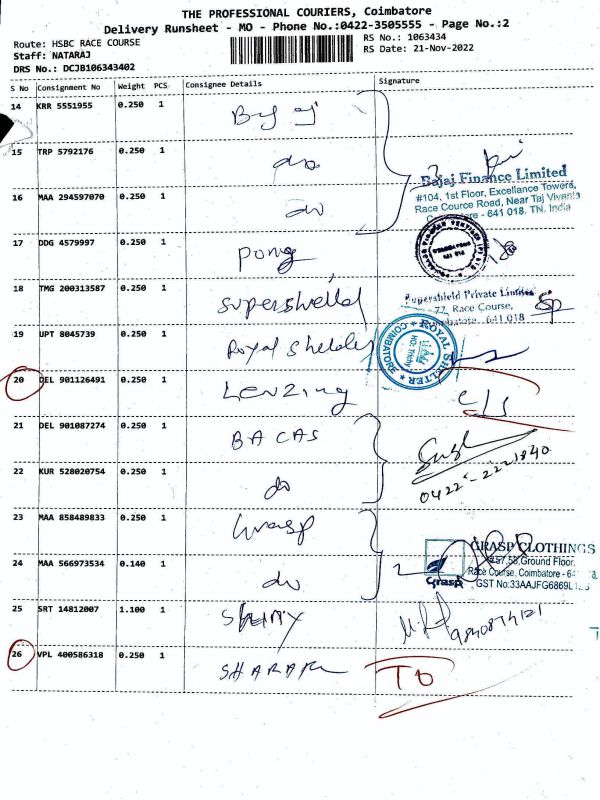 THE PROFESSIONAL COURIERS, Coimbatore
Delivery Runsheet - MO - Phone No.:0422-3505555 - Page No.:2
Route: HSBC RACE COURSE
RS No.: 1063434
Staff: NATARAJ
RS Date: 21-Nov-2022
DRS No.: DCJB106343402
S No Consignment No Weight PCS Consignee Details Signature
14 KRR 5551955 0.250 1
15 TRP 5792176 0.250 1 do
Bajaj Finance Limited
#104, 1st Floor, Excellance Towers,
16 MAA 294597070 0.250 1 do
Race Cource Road, Near Taj Vivanta
- 641 018. TN. India
17 DDG 4579997 0.250 1 Pong
18 TMG 200313587 0.250 1 Supersheild
Supershield Private Limited
77, Race Course,
641 018
19 UPT 8045739 0.250 1 Royal Shelder
ROYAL SHELTER
COIMBATORE
HO: Trichy
20 DEL 901126491 0.250 1 Lenzing
C/S
21 DEL 901087274 0.250 1 BACAS
22 KUR 528020754 0.250 1 do
0422-2221840
23 MAA 858489833 0.250 1 Grasp
GRASP CLOTHINGS
#57,58,Ground Floor,
24 MAA 566973534 0.140 1 do
Grasp
Race Course, Coimbatore - 6
GST No:33AAJFG6869L1
25 SRT 14812007 1.100 1
26 VPL 400586318 0.250 1
TO